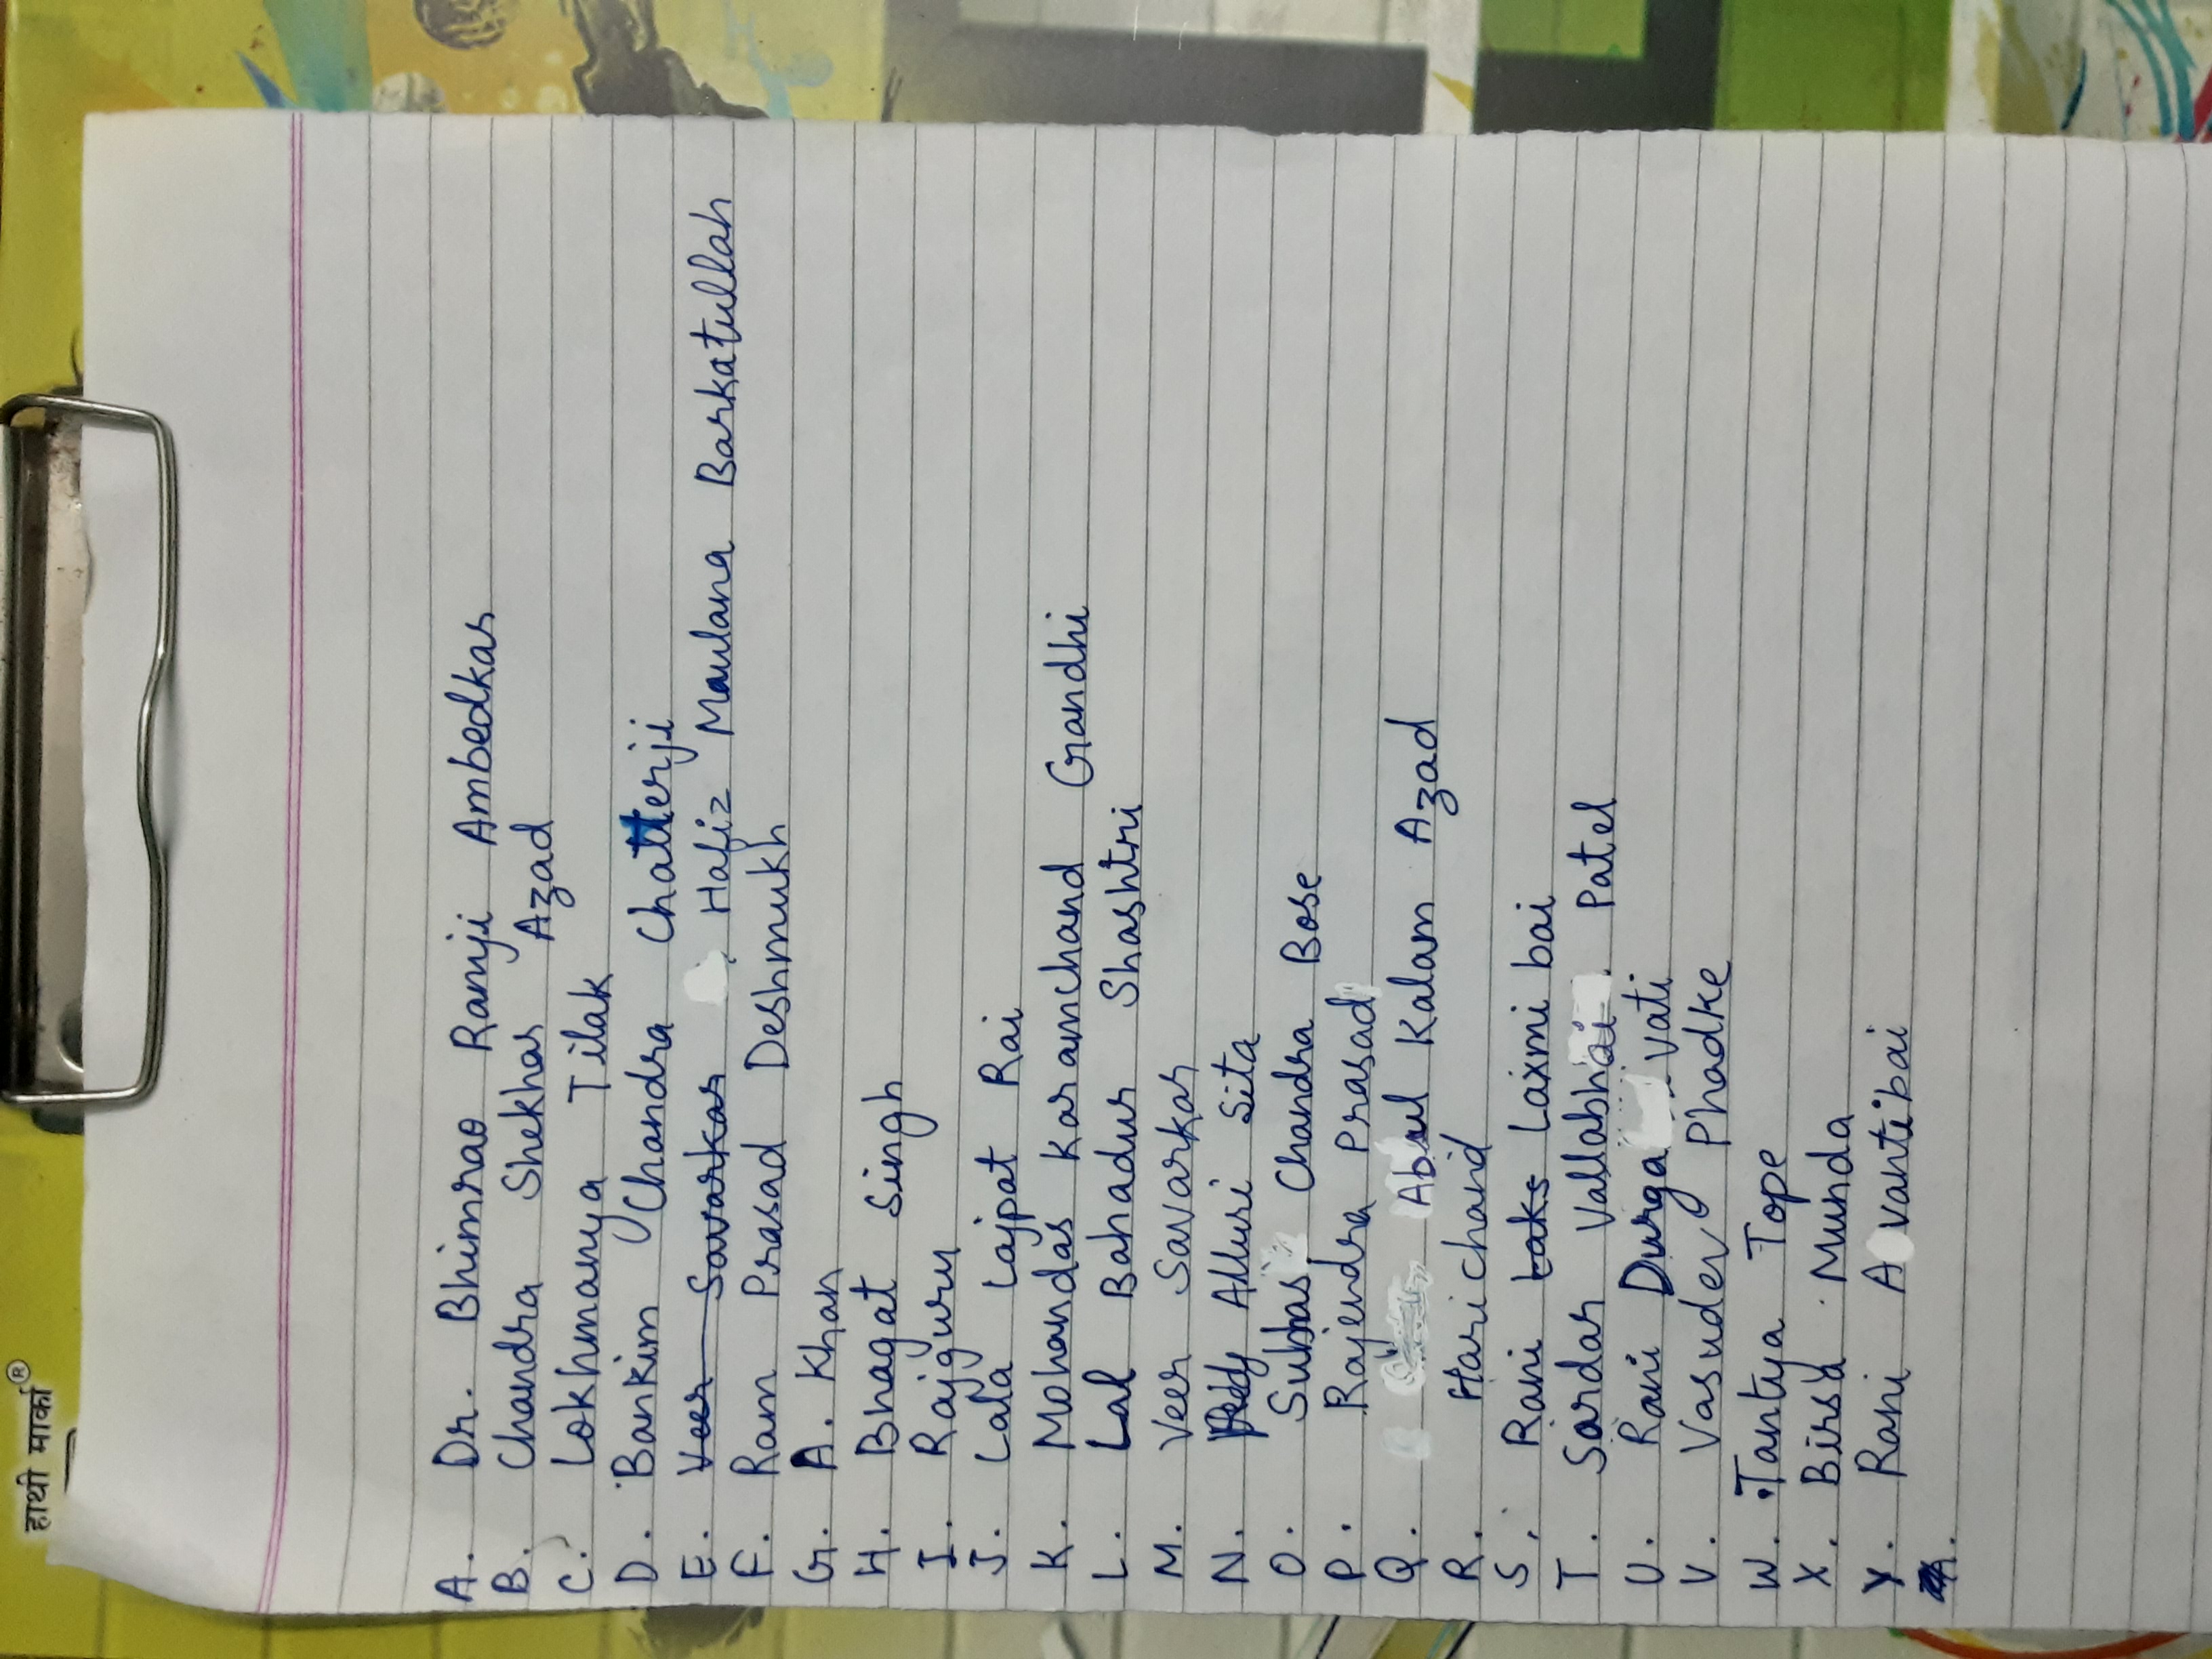 हाथी मार्का ®
A. Dr. Bhimrao Ramji Ambedkar
B. Chandra Shekhar Azad
C. Lokhmanya Tilak
D. Bankim Chandra Chatterji
E. Veer Savarkar Hafiz Maulana Barkatullah
F. Ram Prasad Deshmukh
G. A. Khan
H. Bhagat Singh
I. Rajguru
J. Lala Lajpat Rai
K. Mohandas Karamchand Gandhi
L. Lal Bahadur Shashtri
M. Veer Savarkar
N. Alluri Sita
O. Subhas Chandra Bose
P. Rajendra Prasad
Q. Abul Kalam Azad
R. Harichand
S. Rani Laks Laxmi bai
T. Sardar Vallabhai Patel
U. Rani Durga vati
V. Vasudev Phadke
W. Tantya Tope
X. Birsa Munda
Y. Rani Avantibai